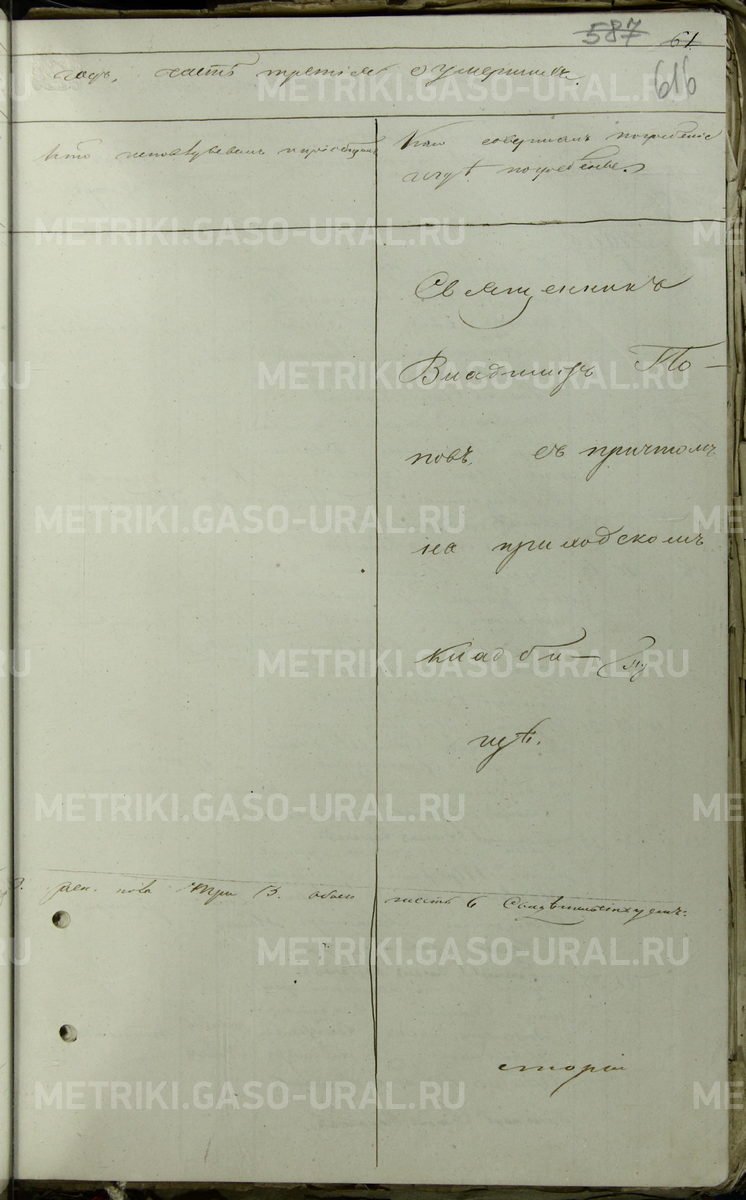 587 61
616
годъ, часть третія о умершихъ.
Кто исповѣдывалъ и пріобщалъ
Кто совершалъ погребеніе
и гдѣ погребены.
Священникъ
Владимиръ По-
повъ съ причтомъ
на приходскомъ
кладби-
щѣ.
жен. пола три 3. обоего шесть 6
METRIKI.GASO-URAL.RU